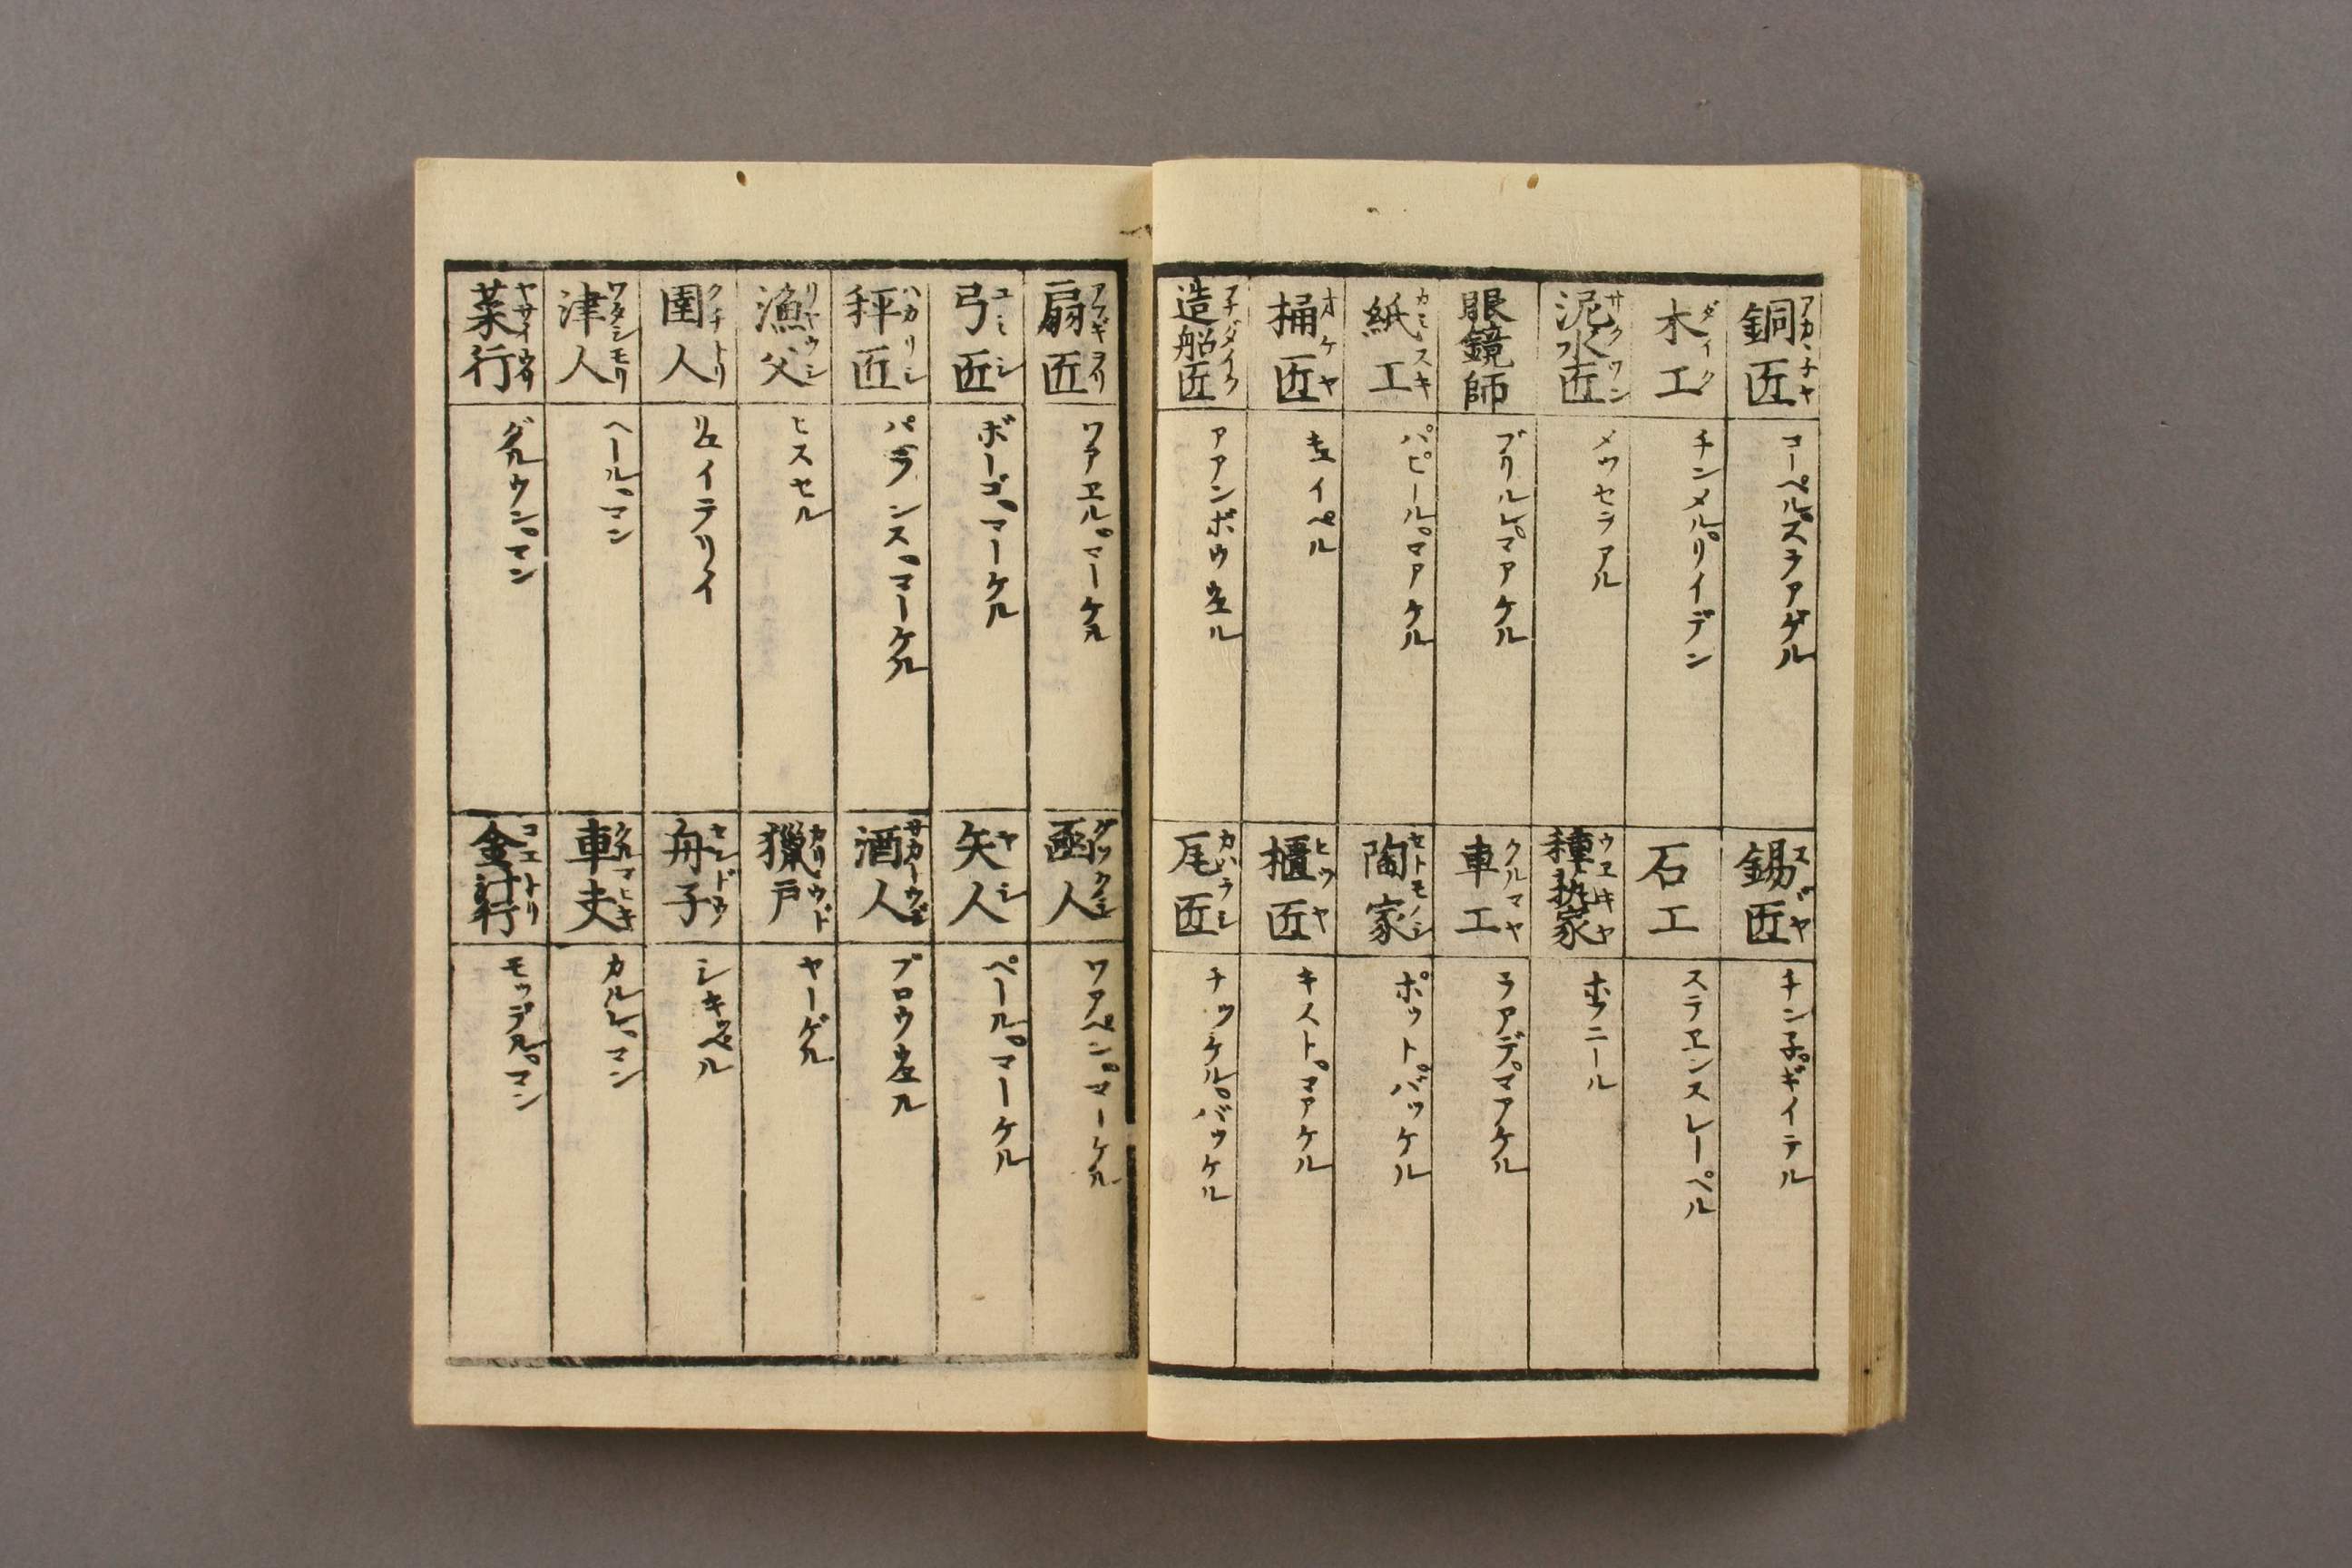 銅匠 アカヾ子ヤ
コーペル。スラアゲル
木工 ダイク
チンメル。リイデン
泥水匠 サクワン
メッセラアル
眼鏡師
ブリルレ。マアケル
紙工 カミスキ
パピール。マアケル
桶匠 オケヤ
キュイペル
造船匠 フナダイク
アアンボウウェル
錫匠 スヾヤ
チン子。ギイテル
石工
ステエンスレーペル
種執家 ウヱキヤ
ホフニール
車工 クルマヤ
ラアデ。マアケル
陶家 セトモノシ
ポット。バッケル
櫃匠 ヒツヤ
キスト。マアケル
瓦匠 カハラシ
チッケル。バッケル
扇匠 アフギヲリ
ワアエル。マーケル
弓匠 ユミシ
ボーゴ。マーケル
秤匠 ハカリシ
バランス。マーケル
漁父 リヤウシ
ヒスセル
圉人 クチトリ
リュイテリイ
津人 ワタシモリ
ヘール。マン
菜行 ヤサイウリ
グルウン。マン
函人 グソクシ
ワアペン。マーケル
矢人 ヤシ
ペール。マーケル
酒人
ブロウウェル
獵戸 カリウド
ヤーゲル
舟子 センドウ
シキッペル
車夫 クルマヒキ
カルレ。マン
コエトリ
モッデル。マン